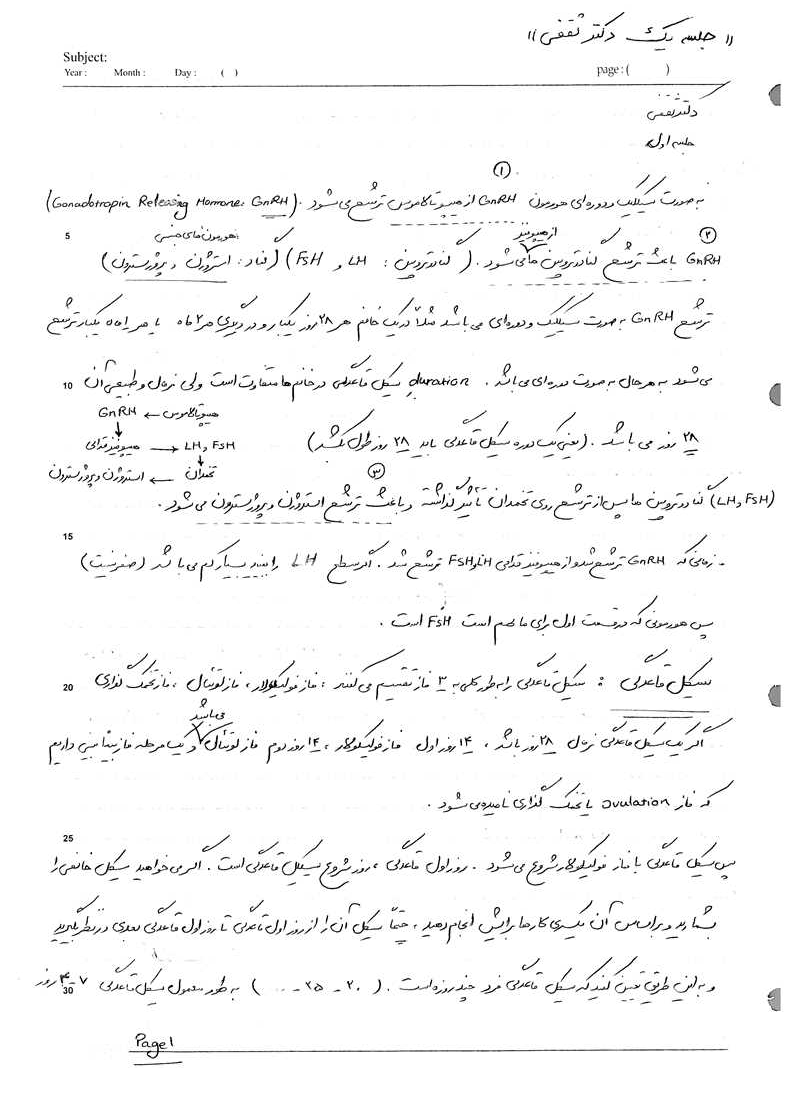 "جلسه یک دکتر ثقفی"
Subject:
Year : Month : Day : ( )
page : ( )
دکتر ثقفی
جلسه اول
①
به صورت سیکلیک و دوره ای هورمون GnRH از هیپوتالاموس ترشح می شود . (Gonadotropin Releasing Hormone: GnRH)
5
هورمون های جنسی
از هیپوفیز
②
GnRH باعث ترشح گنادوتروپین ها می شود . ( گنادوتروپین : LH و FSH ) (گناد : استروژن و پروژسترون )
ترشح GnRH به صورت سیکلیک و دوره ای می باشد مثلاً در یک خانم هر ۲۸ روز یکبار و در دیگری هر ۲ ماه یا هر ماه یکبار ترشح
10
می شود به هر حال به صورت دوره ای می باشد . duration سیکل قاعدگی در خانم ها متفاوت است ولی نرمال و طبیعی آن
هیپوتالاموس ← GnRH
۲۸ روز می باشد . (یعنی یک دوره سیکل قاعدگی باید ۲۸ روز طول بکشد)
هیپوفیز قدامی → LH, FSH
تخمدان ← استروژن و پروژسترون
③
(LH و FSH) گنادوتروپین ها پس از ترشح روی تخمدان تأثیر گذاشته و باعث ترشح استروژن و پروژسترون می شود .
15
- زمانی که GnRH ترشح شد و از هیپوفیز قدامی LH و FSH ترشح شد . اگر سطح LH را ببیند بسیار کم می باشد (صفر نیست)
پس هورمونی که در قسمت اول برای ما مهم است FSH است .
20
سیکل قاعدگی : سیکل قاعدگی را به طور کلی به ۳ فاز تقسیم می کنند ، فاز فولیکولار ، فاز لوتئال ، فاز تخمک گذاری
می باشد
اگر یک سیکل قاعدگی نرمال ۲۸ روز باشد ، ۱۴ روز اول فاز فولیکولار ، ۱۴ روز دوم فاز لوتئال و یک مرحله فاز بینابینی داریم
که فاز ovulation یا تخمک گذاری نامیده می شود .
25
پس سیکل قاعدگی با فاز فولیکولار شروع می شود . روز اول قاعدگی ، روز شروع سیکل قاعدگی است . اگر می خواهید سیکل خانمی را
بشمارید و بر اساس آن یکسری کارها برایش انجام دهید ، حتماً سیکل آن را از روز اول قاعدگی تا روز اول قاعدگی بعدی در نظر بگیرید
30
و به این طریق تعیین کنید که سیکل قاعدگی فرد چند روزه است . ( ۲۰ - ۲۵ - ... ) به طور معمول سیکل قاعدگی ۷-۴ روز
Page 1